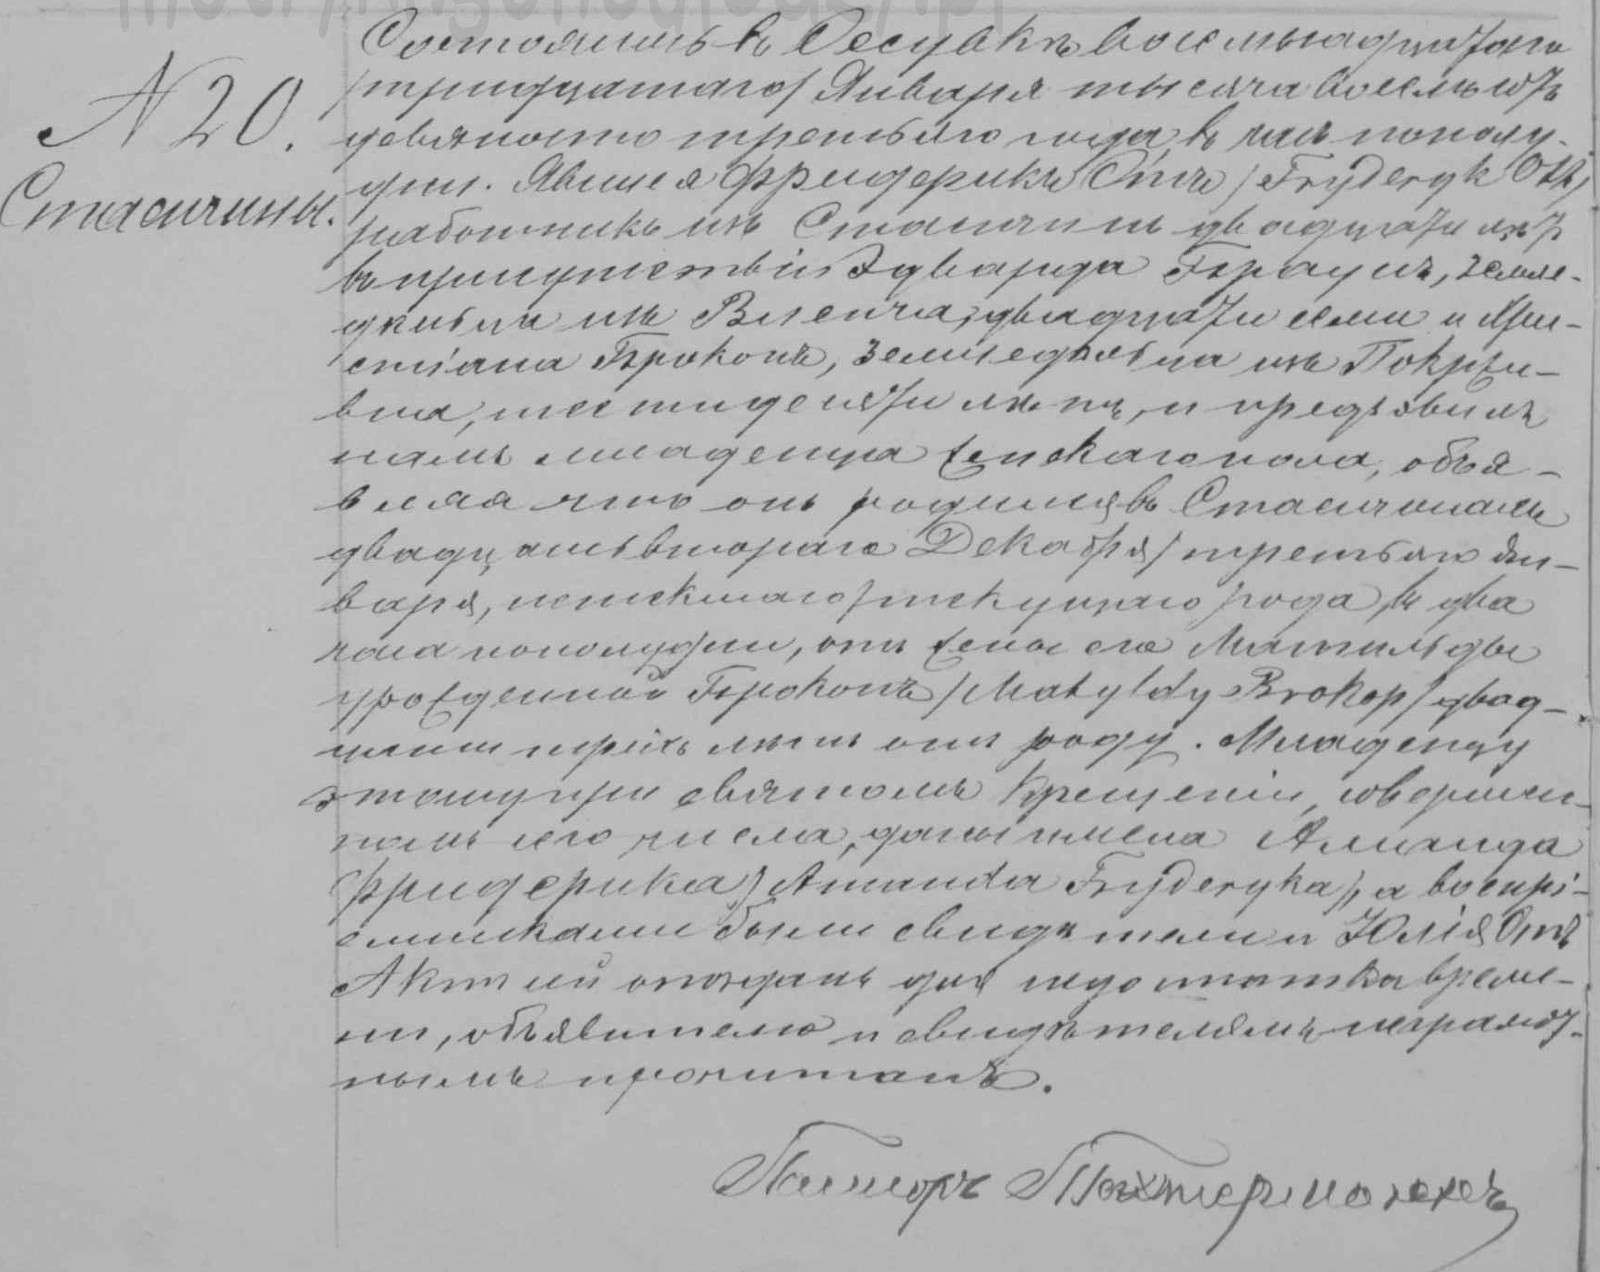 N 20.
Стасичины.
Состоялось въ Осувкѣ восемьнадцатаго
/тридцатаго/ Января тысяча восемьсотъ
девяносто третьяго года, въ часъ пополу-
дни. Явился Фридерикъ Отъ /Fryderyk Ott/,
работникъ изъ Стасичинъ двадцати лѣтъ
въ присутствіи Эдварда Браунъ, земле-
дѣльца изъ, двадцати семи и Хри-
стіана Брокопъ, земледѣльца изъ
шестидесяти лѣтъ, и предъявилъ
намъ младенца женскаго пола, объя-
вляя что онъ родился въ Стасичинахъ
двадцать втораго Декабря /третьяго Ян-
варя, истекшаго /текущаго/ года, въ два
часа пополудни, отъ жены его Матильды
урожденной Брокопъ /Matyldy Brokop/ двад-
цати трехъ лѣтъ отъ роду. Младенцу
этому при святомъ Крещеніи, совершен-
номъ сего числа, даны имена Аманда
Фридерика /Amanda Fryderyka/, а воспрі-
емниками были свидѣтели и Юлія Отъ
Актъ сей опозданъ для недостатка време-
ни, объявителю и свидѣтелямъ неграмот-
нымъ прочитанъ.
Пасторъ